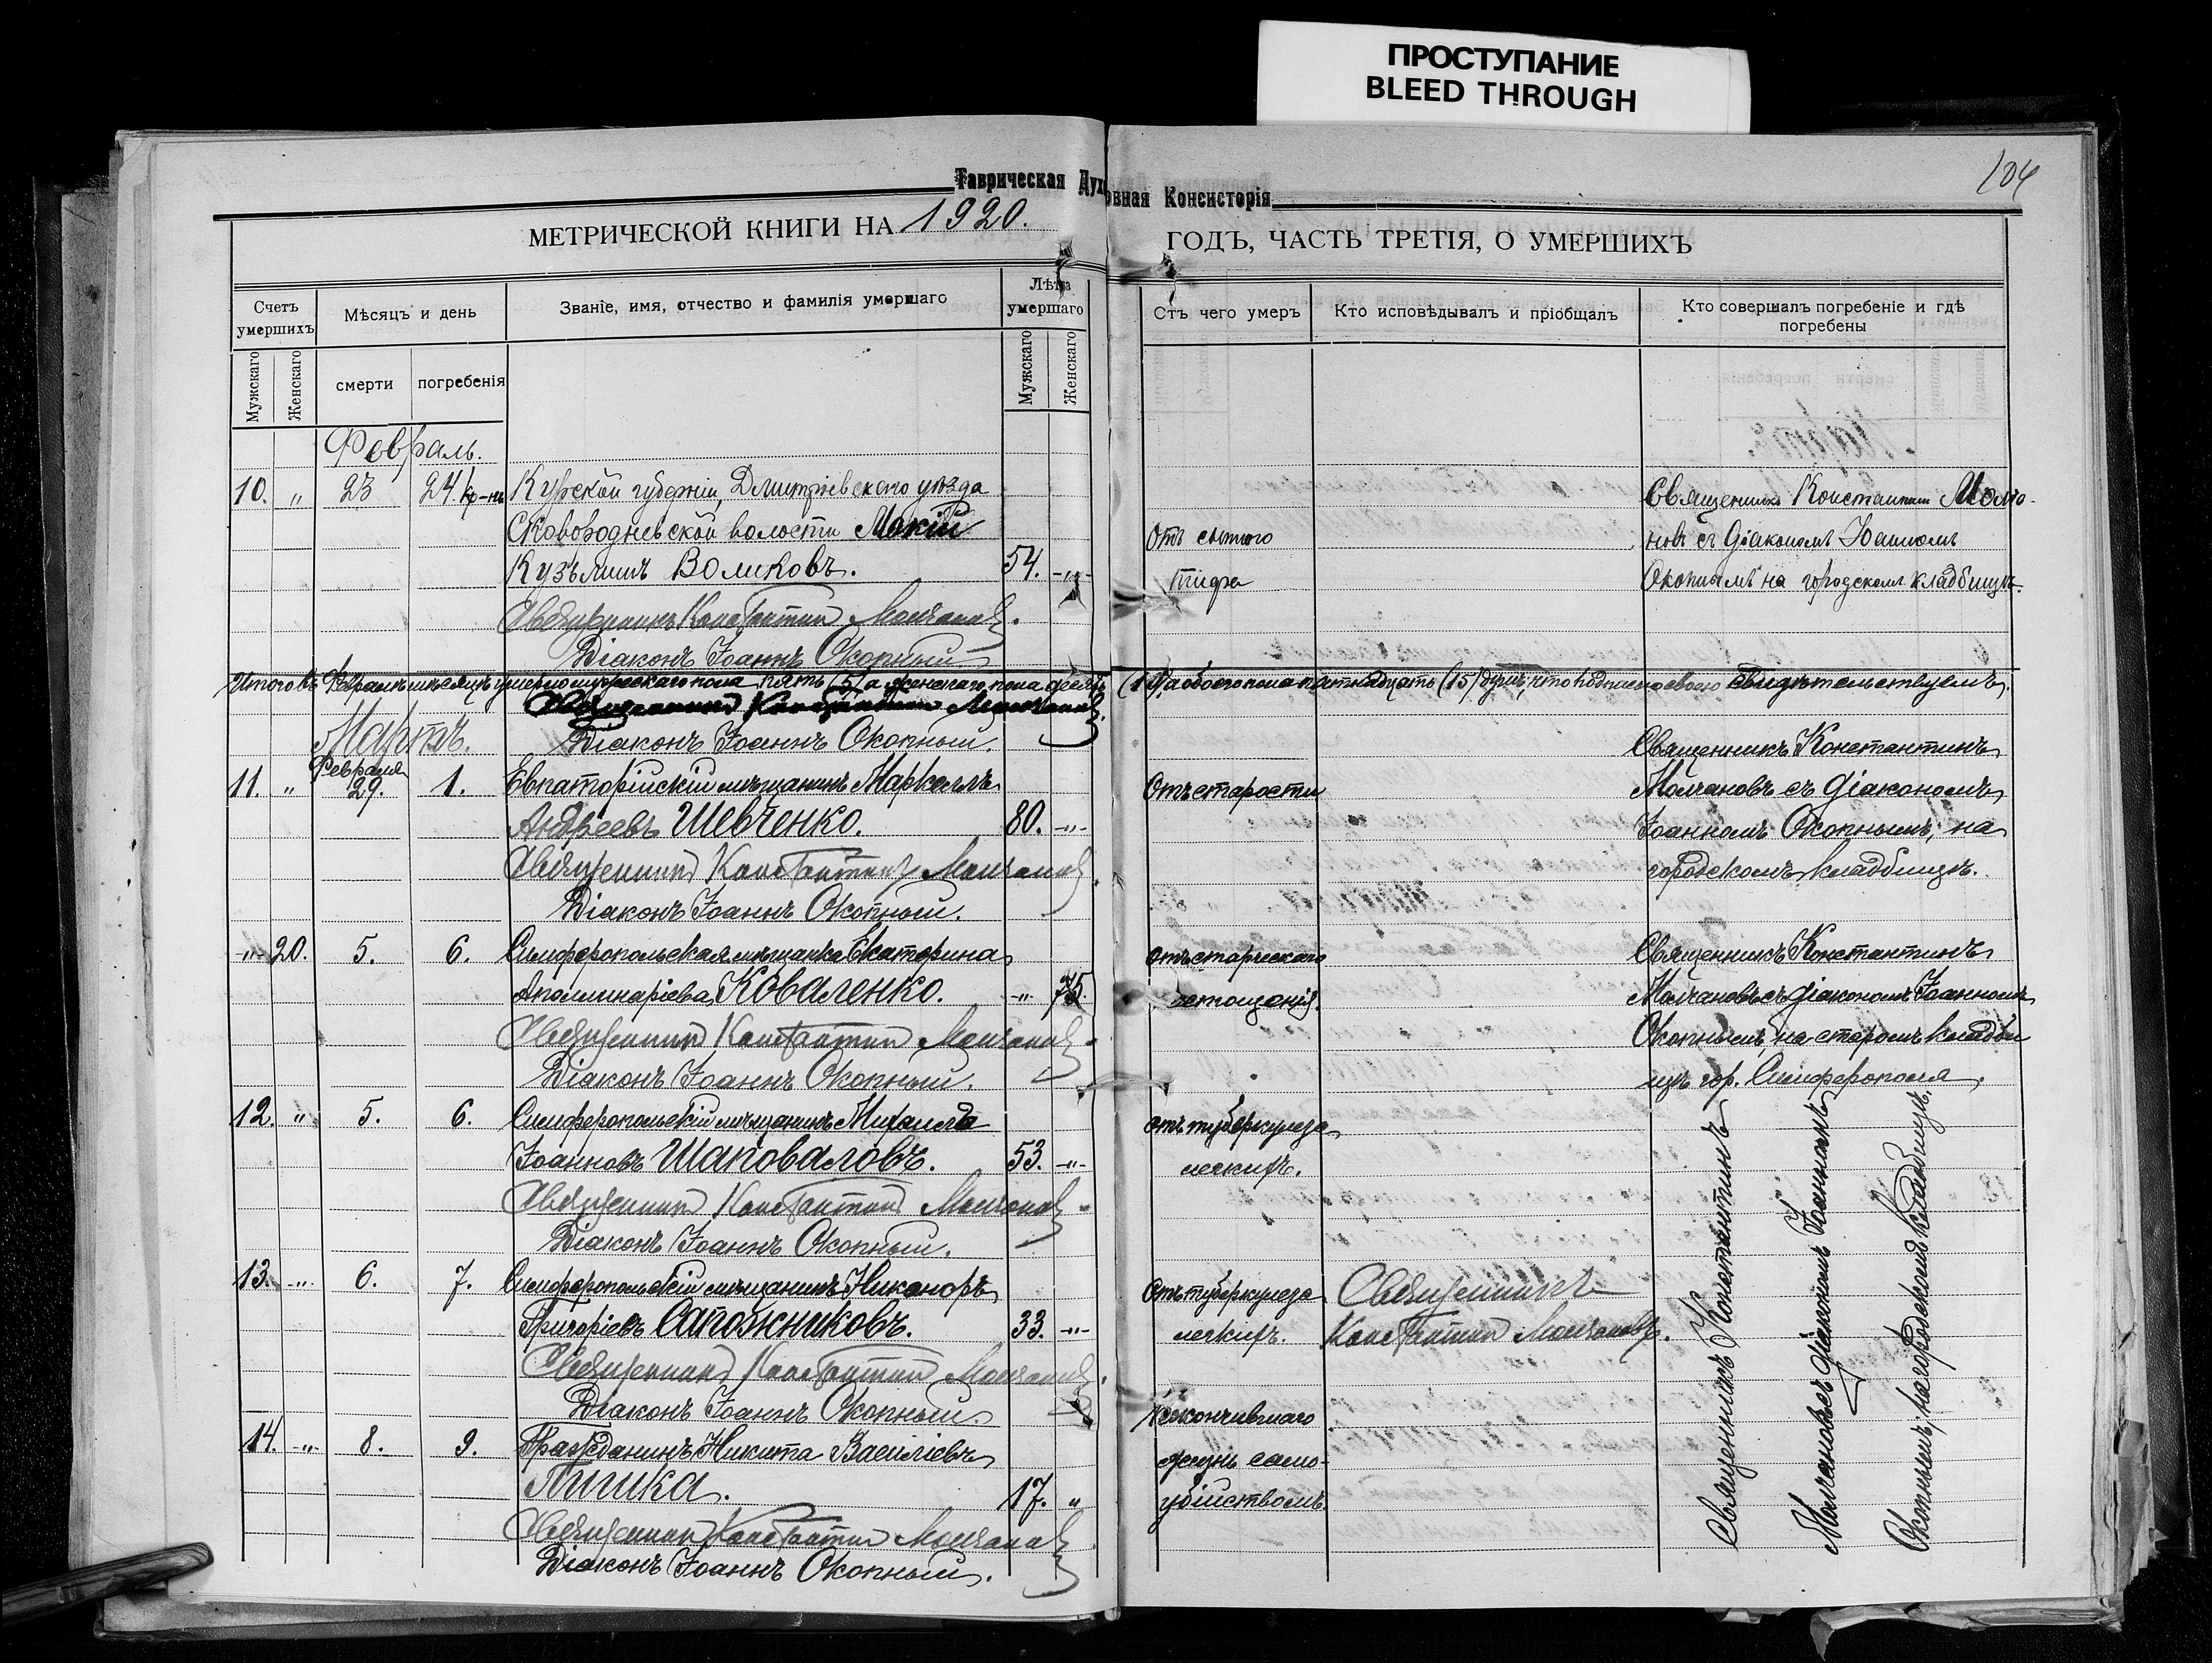 ПРОСТУПАНИЕ
BLEED THROUGH
104
Таврическая Духовная Консисторія
МЕТРИЧЕСКОЙ КНИГИ НА 1920. ГОДЪ, ЧАСТЬ ТРЕТІЯ, О УМЕРШИХЪ
Счетъ умершихъ
Мѣсяцъ и день
Званіе, имя, отчество и фамилія умершаго
Лѣта умершаго
Отъ чего умеръ
Кто исповѣдывалъ и пріобщалъ
Кто совершалъ погребеніе и гдѣ погребены
Мужскаго
Женскаго
смерти
погребенія
Мужскаго
Женскаго
Февраль.
10. " 23 24. Курской губерніи, Дмитріевскаго уѣзда
Сковородневской волости Мокій
Кузьминъ Воликовъ. 54. -"-
Отъ сыпного
тифа
Священникъ Константинъ Молча-
новъ съ діакономъ Іоанномъ
Окопнымъ на городскомъ кладбищѣ.
Священникъ Константинъ Молчановъ.
Діаконъ Іоаннъ Окопный
Итого въ Февралѣ мѣсяцѣ умерло мужескаго пола пять (5) а женскаго пола десять (10), а обоего пола пятнадцать (15) душъ, что подписью своею свидѣтельствуемъ.
Священникъ Константинъ Молчановъ.
Діаконъ Іоаннъ Окопный.
Мартъ.
11. " Февраля 29. 1. Евпаторійскій мѣщанинъ Маркеллъ
Андреевъ Шевченко. 80. -"-
Отъ старости
Священникъ Константинъ
Молчановъ съ діакономъ
Іоанномъ Окопнымъ, на
городскомъ кладбищѣ.
Священникъ Константинъ Молчановъ.
Діаконъ Іоаннъ Окопный.
-"- 20. 5. 6. Симферопольская мѣщанка Екатерина
Аполлинаріева Коваленко. -"- 75.
отъ старческаго
истощенія.
Священникъ Константинъ
Молчановъ съ діакономъ Іоанномъ
Окопнымъ, на старомъ кладби
щѣ гор. Симферополя.
Священникъ Константинъ Молчановъ.
Діаконъ Іоаннъ Окопный.
12. " 5. 6. Симферопольскій мѣщанинъ Михаилъ
Іоанновъ Шаповаловъ. 53. -"-
отъ туберкулеза
легкихъ.
Священникъ Константинъ Молчановъ.
Діаконъ Іоаннъ Окопный.
13. -"- 6. 7. Симферопольскій мѣщанинъ Никаноръ
Григоріевъ Сапожниковъ. 33. -"-
Отъ туберкулеза
легкихъ.
Священникъ
Константинъ Молчановъ.
Священникъ Константинъ Молчановъ.
Діаконъ Іоаннъ Окопный.
14. -"- 8. 9. Гражданинъ Никита Василіевъ
17. "
жизнь само-
убійствомъ
Священникъ Константинъ Молчановъ
Діаконъ Іоаннъ Окопный.
Священникъ Константинъ
Молчановъ съ діакономъ Іоанномъ
Окопнымъ, на городскомъ кладбищѣ.